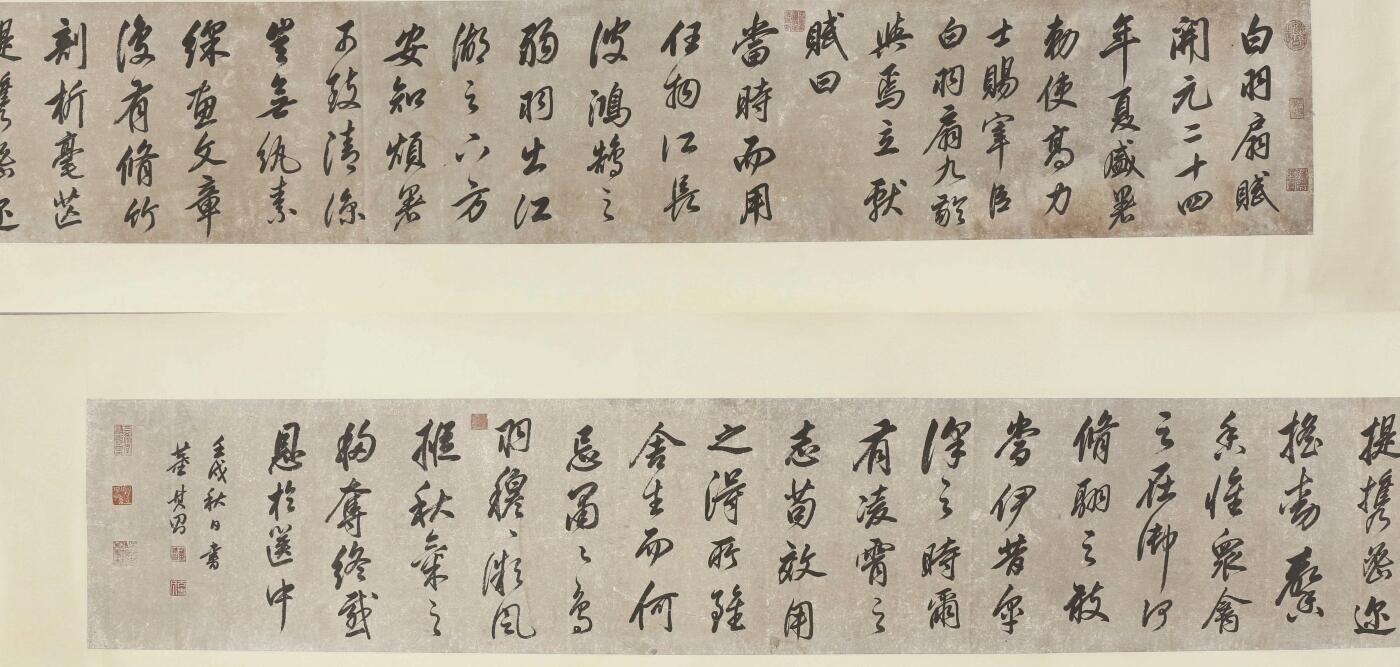 白羽扇賦
開元二十四
年夏盛暑
勅使高力
士賜宰臣
白羽扇九齡
與焉立獻
賦曰
當時而用
任物所長
彼鴻鵠之
弱羽出江
湖之下方
安知煩暑
可致清涼
豈無紈素
綵畫文章
復有脩竹
剖析毫芒
提攜密邇
搖動馨
香惟眾禽
之在御何
脩翮之敢
當伊昔皋
澤之時爾
有凌霄之
志苟效用
之得所雖
舍生而何
忌肅〻鳥
羽穆〻風
秋氣之
移奪終感
恩於篋中
壬戌秋日書
董其昌